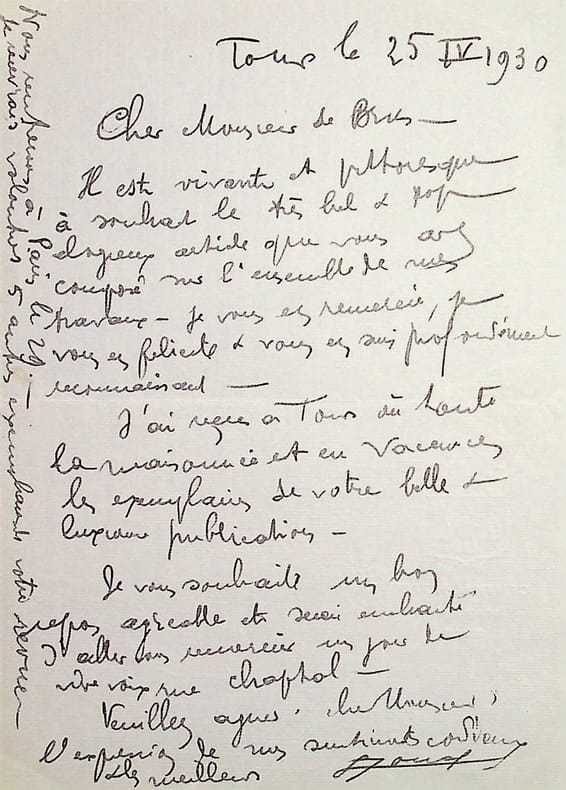 Tours le 25 IV 1930
Cher Monsieur de
Il est vivant et pittoresque
à souhait le très bel & trop
élogieux article que vous avez
composé sur l'ensemble de mes
travaux – je vous en remercie, je
vous en felicite & vous en suis profondément
reconnaissant —
J'ai reçu à Tours où toute
la maisonnée est en vacances
les exemplaires de votre belle &
luxueuse publication –
Je vous souhaite un bon
repos agréable et serai enchanté
d'aller vous remercier un jour de
vive voix rue Chaptal –
Veuillez agréer, cher Monsieur,
l'expression de mes sentiments cordiaux
& les meilleurs
Nous rentrerons à Paris le 29 –
je recevrais volontiers 5 autres exemplaires de votre revue –